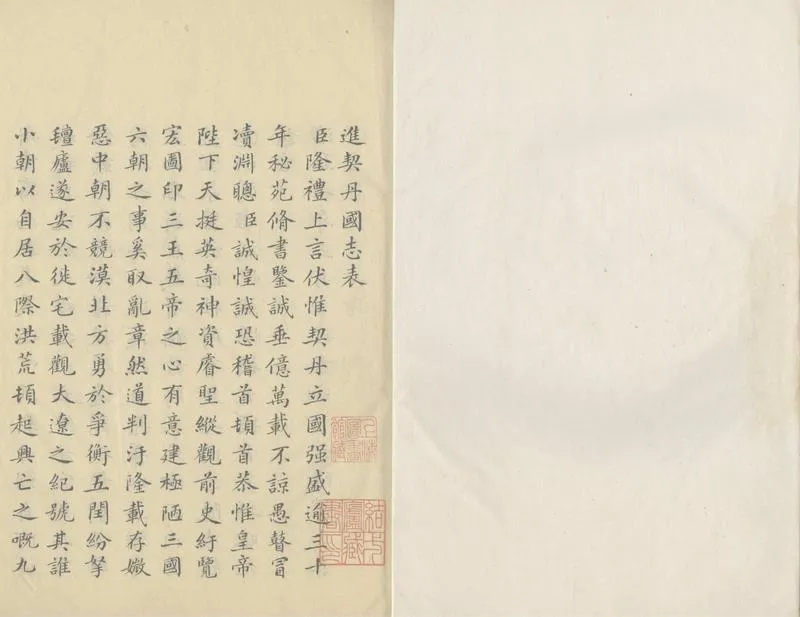 進契丹國志表
臣隆禮上言伏惟契丹立國强盛逾三十
年秘苑脩書鑒誠垂億萬載不諒愚瞽冒
凟淵聰臣誠惶誠恐稽首頓首恭惟皇帝
陛下天挺英奇神資睿聖縱觀前史紆覽
宏圖印三王五帝之心有意建極陋三國
六朝之事奚取亂章然道判汙隆載存媺
惡中朝不競漠北方勇於爭衡五閏紛拏
氊廬遂安於徙宅載觀大遼之紀號其誰
小朝以自居八際洪荒頓起興亡之嘅九